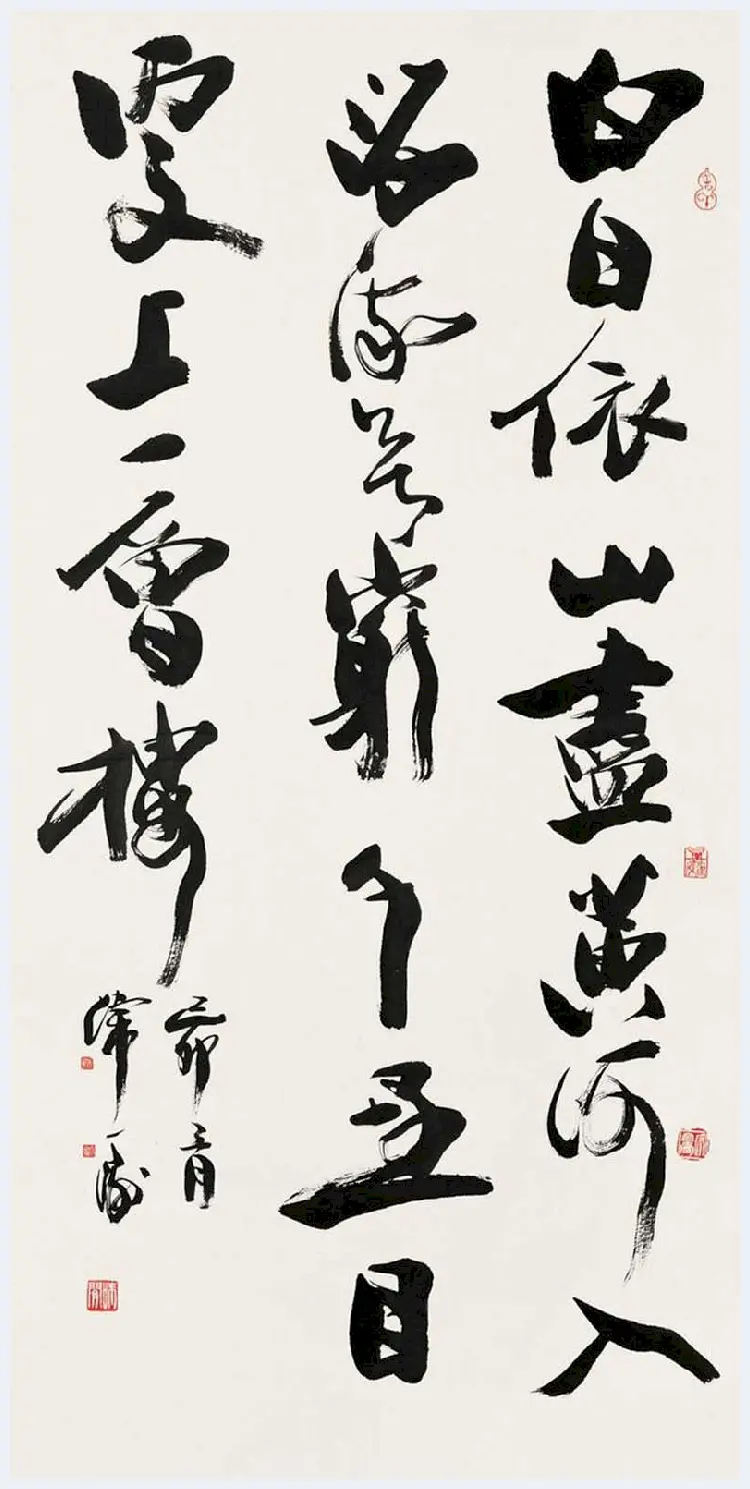 白日依山盡黃河入
海流欲窮千里目
更上一層樓
己卯三月